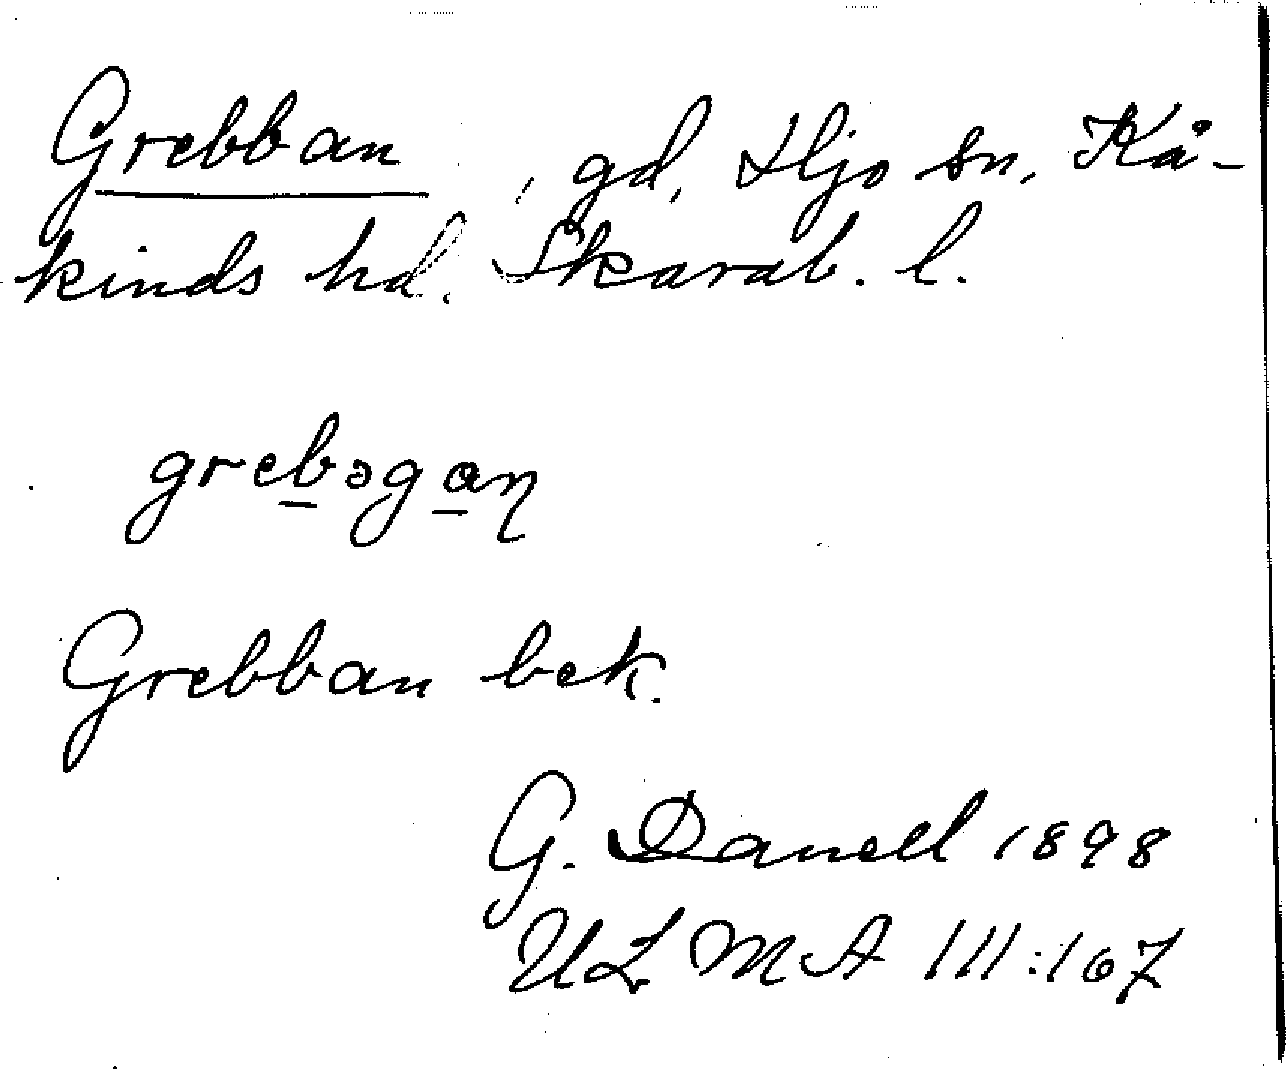 Grebban, gd, Hjo sn, Kå-
kinds hd. Skarab. l.
grebəgaŋ
Grebban bek.
G. Danell 1898
ULMA 111:167